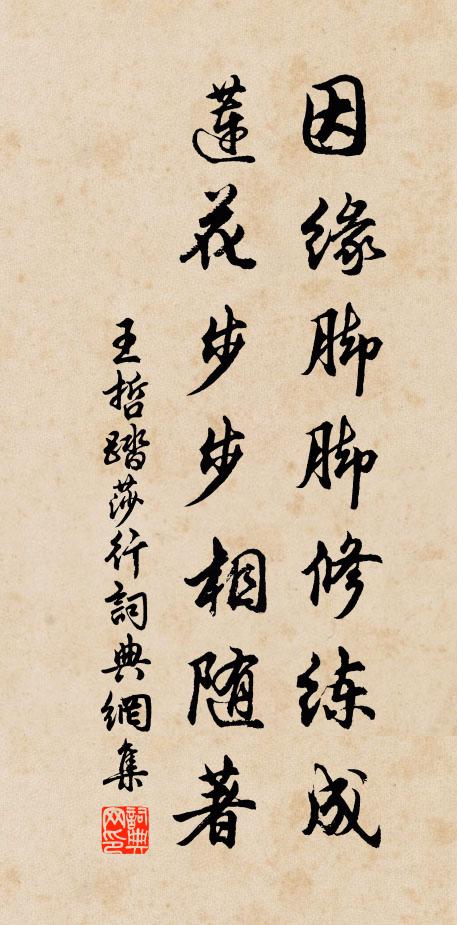 因缘脚脚修练成
莲花步步相随著
王哲踏莎行詞典網集
詞典网印